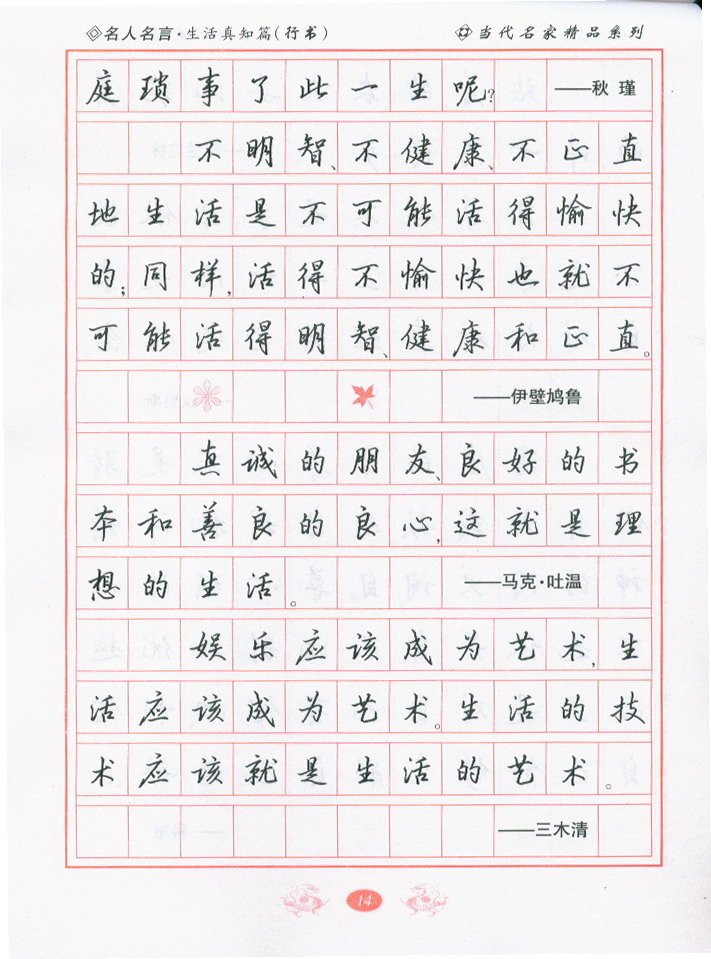 名人名言·生活真知篇(行书) 当代名家精品系列
庭琐事了此一生呢? ——秋瑾
不明智、不健康、不正直
地生活是不可能活得愉快
的;同样,活得不愉快也就不
可能活得明智、健康和正直。
——伊壁鸠鲁
真诚的朋友、良好的书
本和善良的良心,这就是理
想的生活。 ——马克·吐温
娱乐应该成为艺术,生
活应该成为艺术。生活的技
术应该就是生活的艺术。
——三木清
14